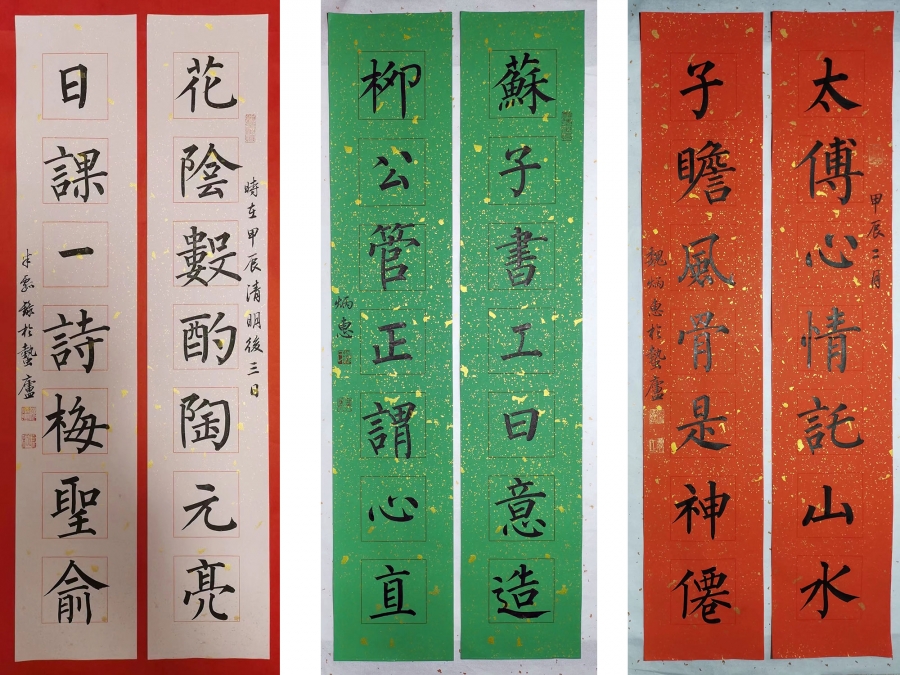 花陰數酌陶元亮
時在甲辰清明後三日
日課一詩梅聖俞
於蟄廬
蘇子書工曰意造
柳公管正謂心直
炳惠
太傅心情託山水
甲辰二月
子瞻風骨是神僊
魏炳惠於蟄廬